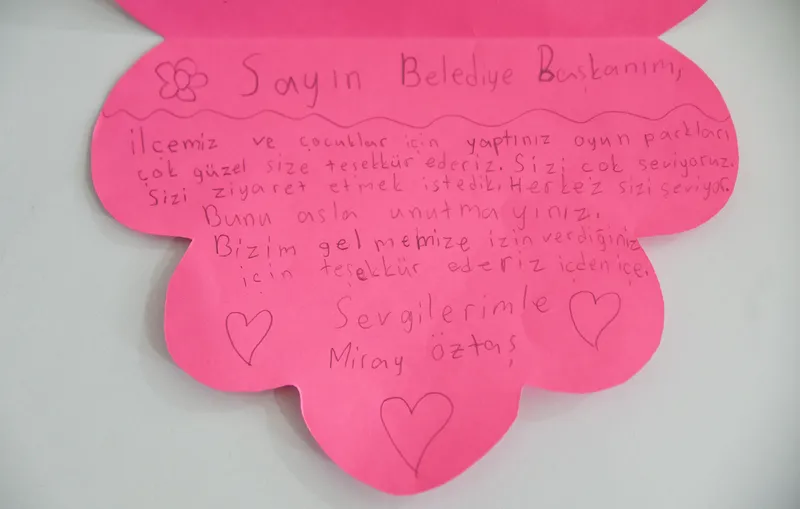 Sayın Belediye Başkanım,
ilcemiz ve çocuklar için yaptınız oyun parkları
çok güzel size teşekkür ederiz. Sizi çok seviyoruz.
Sizi ziyaret etmek istedik. Herkez sizi seviyor.
Bunu asla unutmayınız.
Bizim gelmemize izin verdiğiniz
için teşekkür ederiz içden içe.
Sevgilerimle
Miray Öztaş